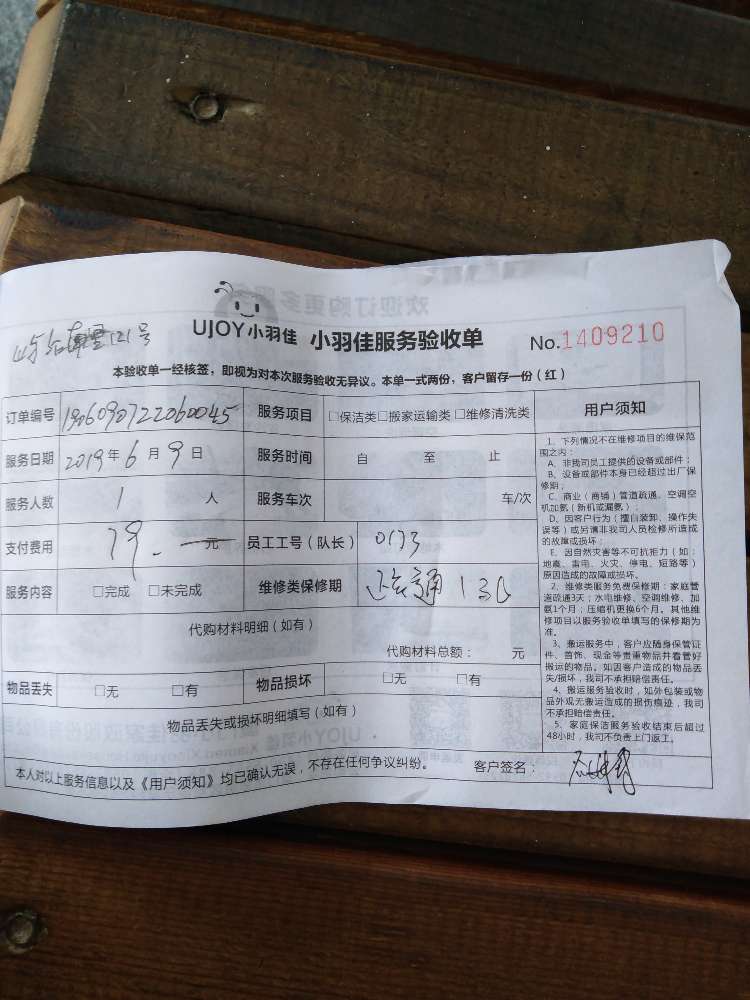 UJOY小羽佳 小羽佳服务验收单 No.1409210
121号
本验收单一经核签，即视为对本次服务验收无异议。本单一式两份，客户留存一份（红）
订单编号 190609072206045 服务项目 □保洁类□搬家运输类□维修清洗类
服务日期 2019年6月9日 服务时间 自 至 止
服务人数 1 人 服务车次 车/次
支付费用 79.一元 员工工号（队长） 0173
服务内容 □完成 □未完成 维修类保修期
代购材料明细（如有）
代购材料总额： 元
物品丢失 □无 □有 物品损坏 □无 □有
物品丢失或损坏明细填写（如有）
本人对以上服务信息以及《用户须知》均已确认无误，不存在任何争议纠纷。 客户签名：
用户须知
1、下列情况不在维修项目的维保范
围之内：
A、非我司员工提供的设备或部件；
B、设备或部件本身已经超过出厂保
修期；
C、商业（商铺）管道疏通、空调空
机加氨（新机或漏氨）；
D、因客户行为（擅自装卸、操作失
误等）或另请非我司人员检修所造成
的故障或损坏；
E、因自然灾害等不可抗拒力（如：
地震、雷电、火灾、停电、短路等）
原因造成的故障或损坏。
2、维修类服务免费保修期：家庭管
道疏通3天；水电维修、空调维修、加
氨1个月；压缩机更换6个月。其他维
修项目以服务验收单填写的保修期为
准。
3、搬运服务中，客户应随身保管证
件、首饰、现金等贵重物品并看管好
搬运的物品。如因客户造成的物品丢
失/损坏，我司不承担赔偿责任。
4、搬运服务验收时，如外包装或物
品外观无搬运造成的损伤痕迹，我司
不承担赔偿责任。
5、家庭保洁服务验收结束后超过
48小时，我司不负责上门返工。